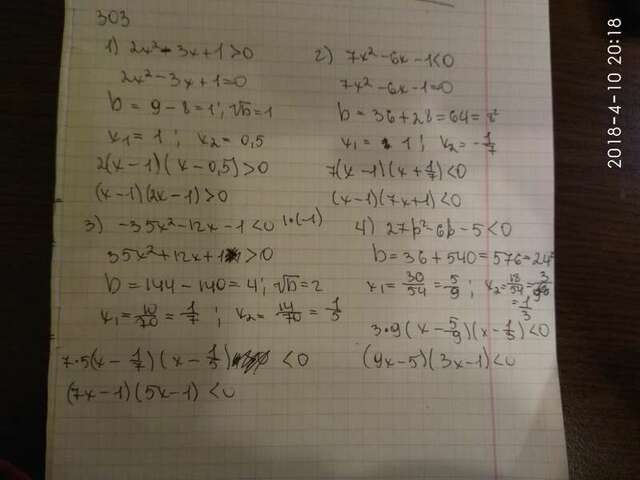 303
1) 2x² - 3x + 1 > 0
2x² - 3x + 1 = 0
D = 9 - 8 = 1 ; √D = 1
x₁ = 1 ; x₂ = 0,5
2(x - 1)(x - 0,5) > 0
(x - 1)(2x - 1) > 0
2) 7x² - 6x - 1 < 0
7x² - 6x - 1 = 0
D = 36 + 28 = 64 = 8²
x₁ = 1 ; x₂ = -1/7
7(x - 1)(x + 1/7) < 0
(x - 1)(7x + 1) < 0
3) -35x² - 12x - 1 < 0 |·(-1)
35x² + 12x + 1 > 0
D = 144 - 140 = 4 ; √D = 2
x₁ = 10/70 = 1/7 ; x₂ = 14/70 = 1/5
7·5(x - 1/7)(x - 1/5) < 0
(7x - 1)(5x - 1) < 0
4) 27p² - 6p - 5 < 0
D = 36 + 540 = 576 = 24²
x₁ = 30/54 = 5/9 ; x₂ = 18/54 = 3/9 = 1/3
3·9(x - 5/9)(x - 1/3) < 0
(9x - 5)(3x - 1) < 0
2018-4-10 20:18